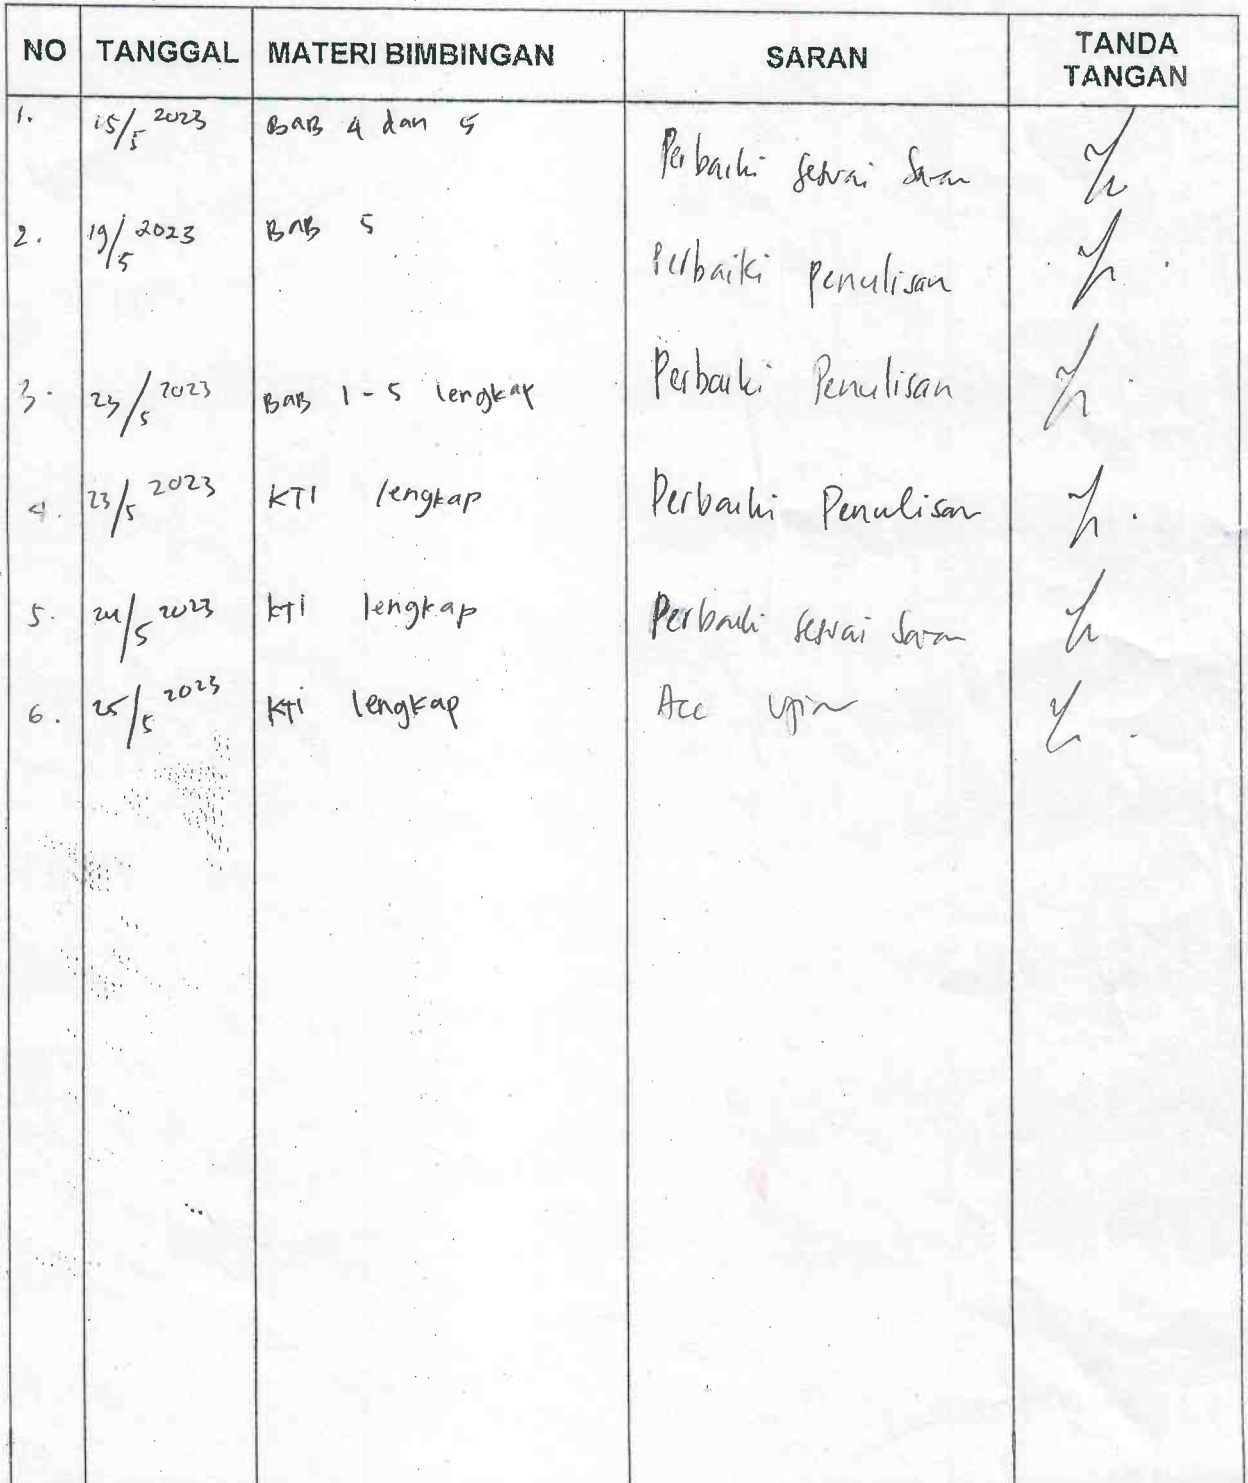 NO TANGGAL MATERI BIMBINGAN SARAN TANDA TANGAN
1. 15/5 2023 BAB 4 dan 5 Perbaiki sesuai Saran
2. 19/5 2023 BAB 5 Perbaiki penulisan
3. 23/5 2023 BAB 1-5 lengkap Perbaiki Penulisan
4. 23/5 2023 KTI lengkap Perbaiki Penulisan
5. 24/5 2023 KTI lengkap Perbaiki sesuai Saran
6. 25/5 2023 KTI lengkap Acc Ujian